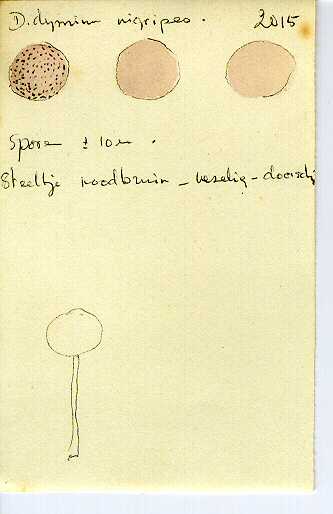 D. dymium nigripes. 2015
Spore ± 10 u.
Steeltje roodbruin - vezelig -